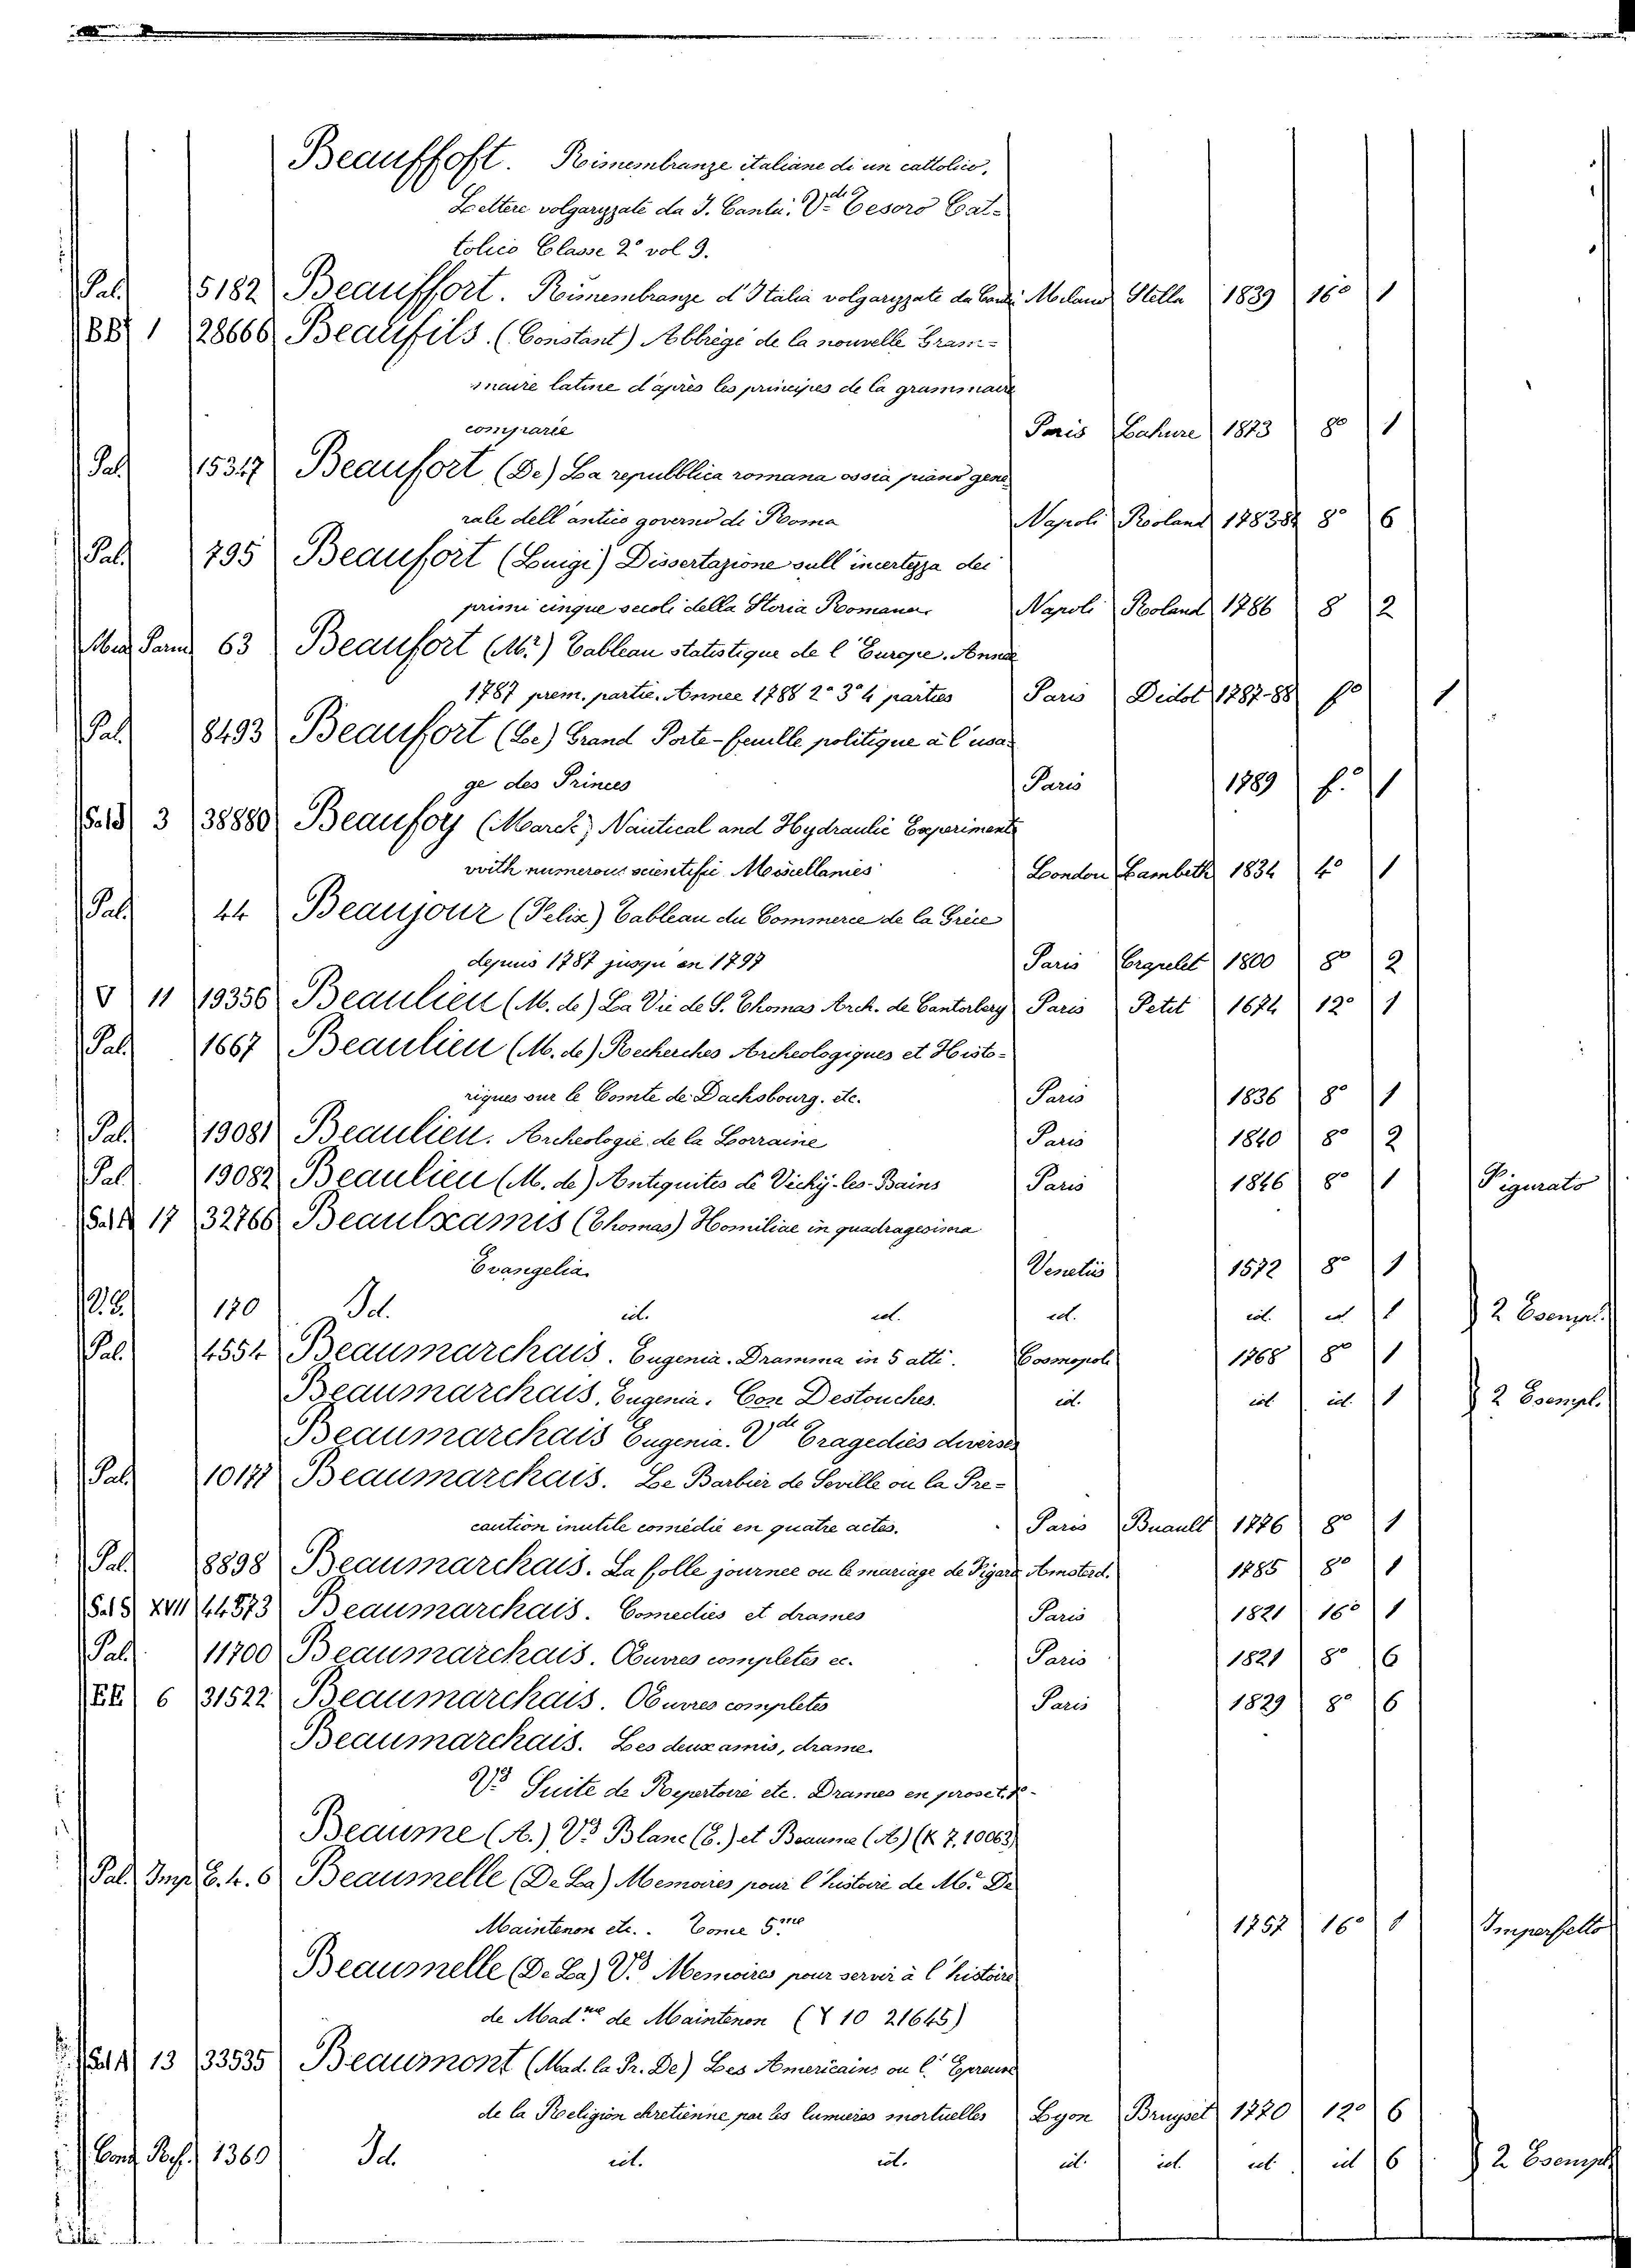 Beauffoft. Rimembranze italiane di un cattolico,
Lettere volgaryzate da I. Cantù. V.de Tesoro Cat-
tolico Classe 2a vol 9.
Pal. 5182 Beauffort. Rimembranze d'Italia volgaryzate da Cantù Milano Stella 1839 16o 1
BB 1 28666 Beaufils. (Constant) Abbrégé de la nouvelle Gram-
maire latine d'après les principes de la grammaire
comparée Paris Lahure 1873 8o 1
Pal. 15347 Beaufort (De) La repulblica romana ossia piano gene
rale dell'antico governo di Roma Napoli Roland 1783 84 8o 6
Pal. 795 Beaufort (Luigi) Dissertazione sull'incertezza dei
primi cinque secoli della Storia Romana. Napoli Roland 1786 8 2
63 Beaufort (Mr.) Tableau statistique de l'Europe. Année
1787 prem. partie. Année 1788 2o 3o 4 parties Paris Didot 1787-88 fo 1
Pal. 8493 Beaufort (Le) Grand Porte-feuille politique à l'usa-
ge des Princes Paris 1789 f.o 1
3 38880 Beaufoy (Marck) Nautical and Hydraulic Experiments
with numerous scientific Miscellanies London Lambeth 1834 4o 1
Pal. 44 Beaujour (Felix) Tableau du Commerce de la Grèce
depuis 1787 jusqu'en 1797 Paris Crapelet 1800 8o 2
V 11 19356 Beaulieu (M. de) La Vie de S. Thomas Arch. de Cantorbery Paris Petit 1674 12o 1
Pal. 1667 Beaulieu (M. de) Recherches Archeologiques et Histo-
riques sur le Comte de Dachsbourg. etc. Paris 1836 8o 1
Pal. 19081 Beaulieu. Archeologie de la Lorraine Paris 1840 8o 2
Pal. 19082 Beaulieu (M. de) Antiquites de Vichy-les-Bains Paris 1846 8o 1 Figurato
Sal A 17 32766 Beaulxamis (Thomas) Homiliae in quadragesima
Evangelia. Venetiis 1572 8o 1
170 Id. id. id. id. id. id. 1 2 Esempl.
Pal. 4554 Beaumarchais. Eugenia. Dramma in 5 atti. Cosmopoli 1768 8o 1
Beaumarchais. Eugenia. Con Destouches. id. id. id. 1 2 Esempl.
Beaumarchais Eugenia. V.de Tragedies diverses
Pal. 10171 Beaumarchais. Le Barbier de Seville ou la Pre-
caution inutile comédie en quatre actes. Paris Ruault 1776 8o 1
Pal. 8898 Beaumarchais. La folle journee ou le mariage de Figaro Amsterd. 1785 8o 1
Sal 5 XVII 44573 Beaumarchais. Comedies et drames Paris 1821 16o 1
Pal. 11700 Beaumarchais. Œuvres completes ec. Paris 1821 8o 6
EE 6 31522 Beaumarchais. Œuvres completes Paris 1829 8o 6
Beaumarchais. Les deux amis, drame.
V.s Suite de Repertoire etc. Drames en prose t.
Beaume (A.) V.s Blanc (E.) et Beaume (A) (K 7. 10063)
Pal. Imp. E. 4. 6 Beaumelle (De La) Memoires pour l'histoire de M.e De
Maintenon etc.. Tome 5me 1757 16o 1 Imperfetto
Beaumelle (De La) V.s Memoires pour servir à l'histoire
de Mad.me de Maintenon (Y 10 21645)
Sal A 13 33535 Beaumont (Mad. la Pr. De) Les Americains ou l'Epreuve
de la Religion chretienne par les lumieres mortuelles Lyon Bruyset 1770 12o 6
1360 Id. id. id. id. id. id. id 6 2 Esempl